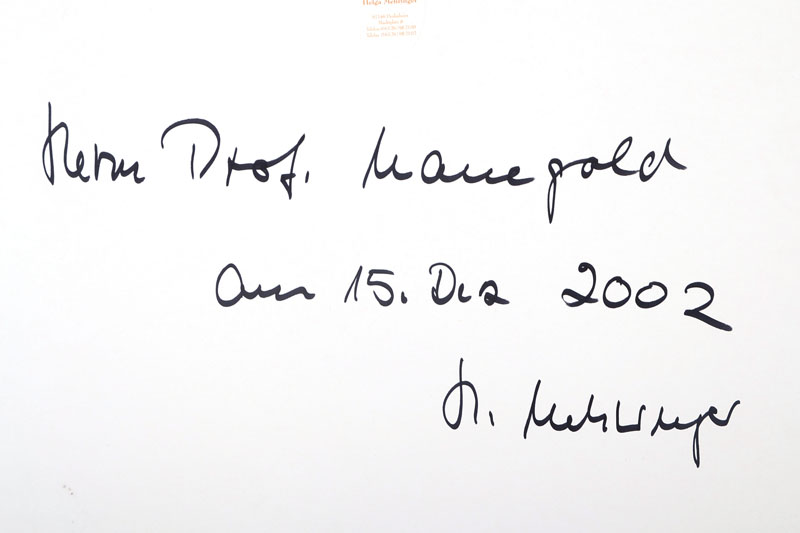 Helga Mehringer
Herrn Prof. Manegold
am 15. Dez 2002
H. Mehringer